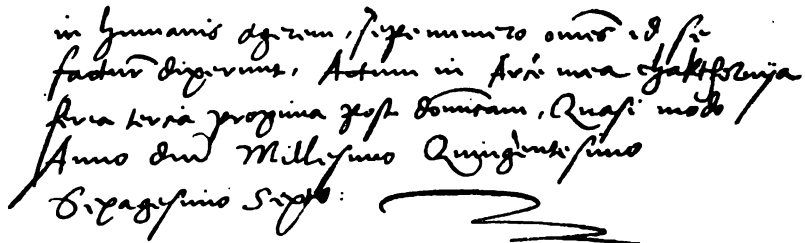 in humanis agerem, sepenumero omēs id se
facturū dixerunt. Actum in Arce mea Chaktornija
feria tercia proxima post domīcam, Quasi modo
Anno dnī Millesimo Quingentesimo
Sexagesimo Sexto: